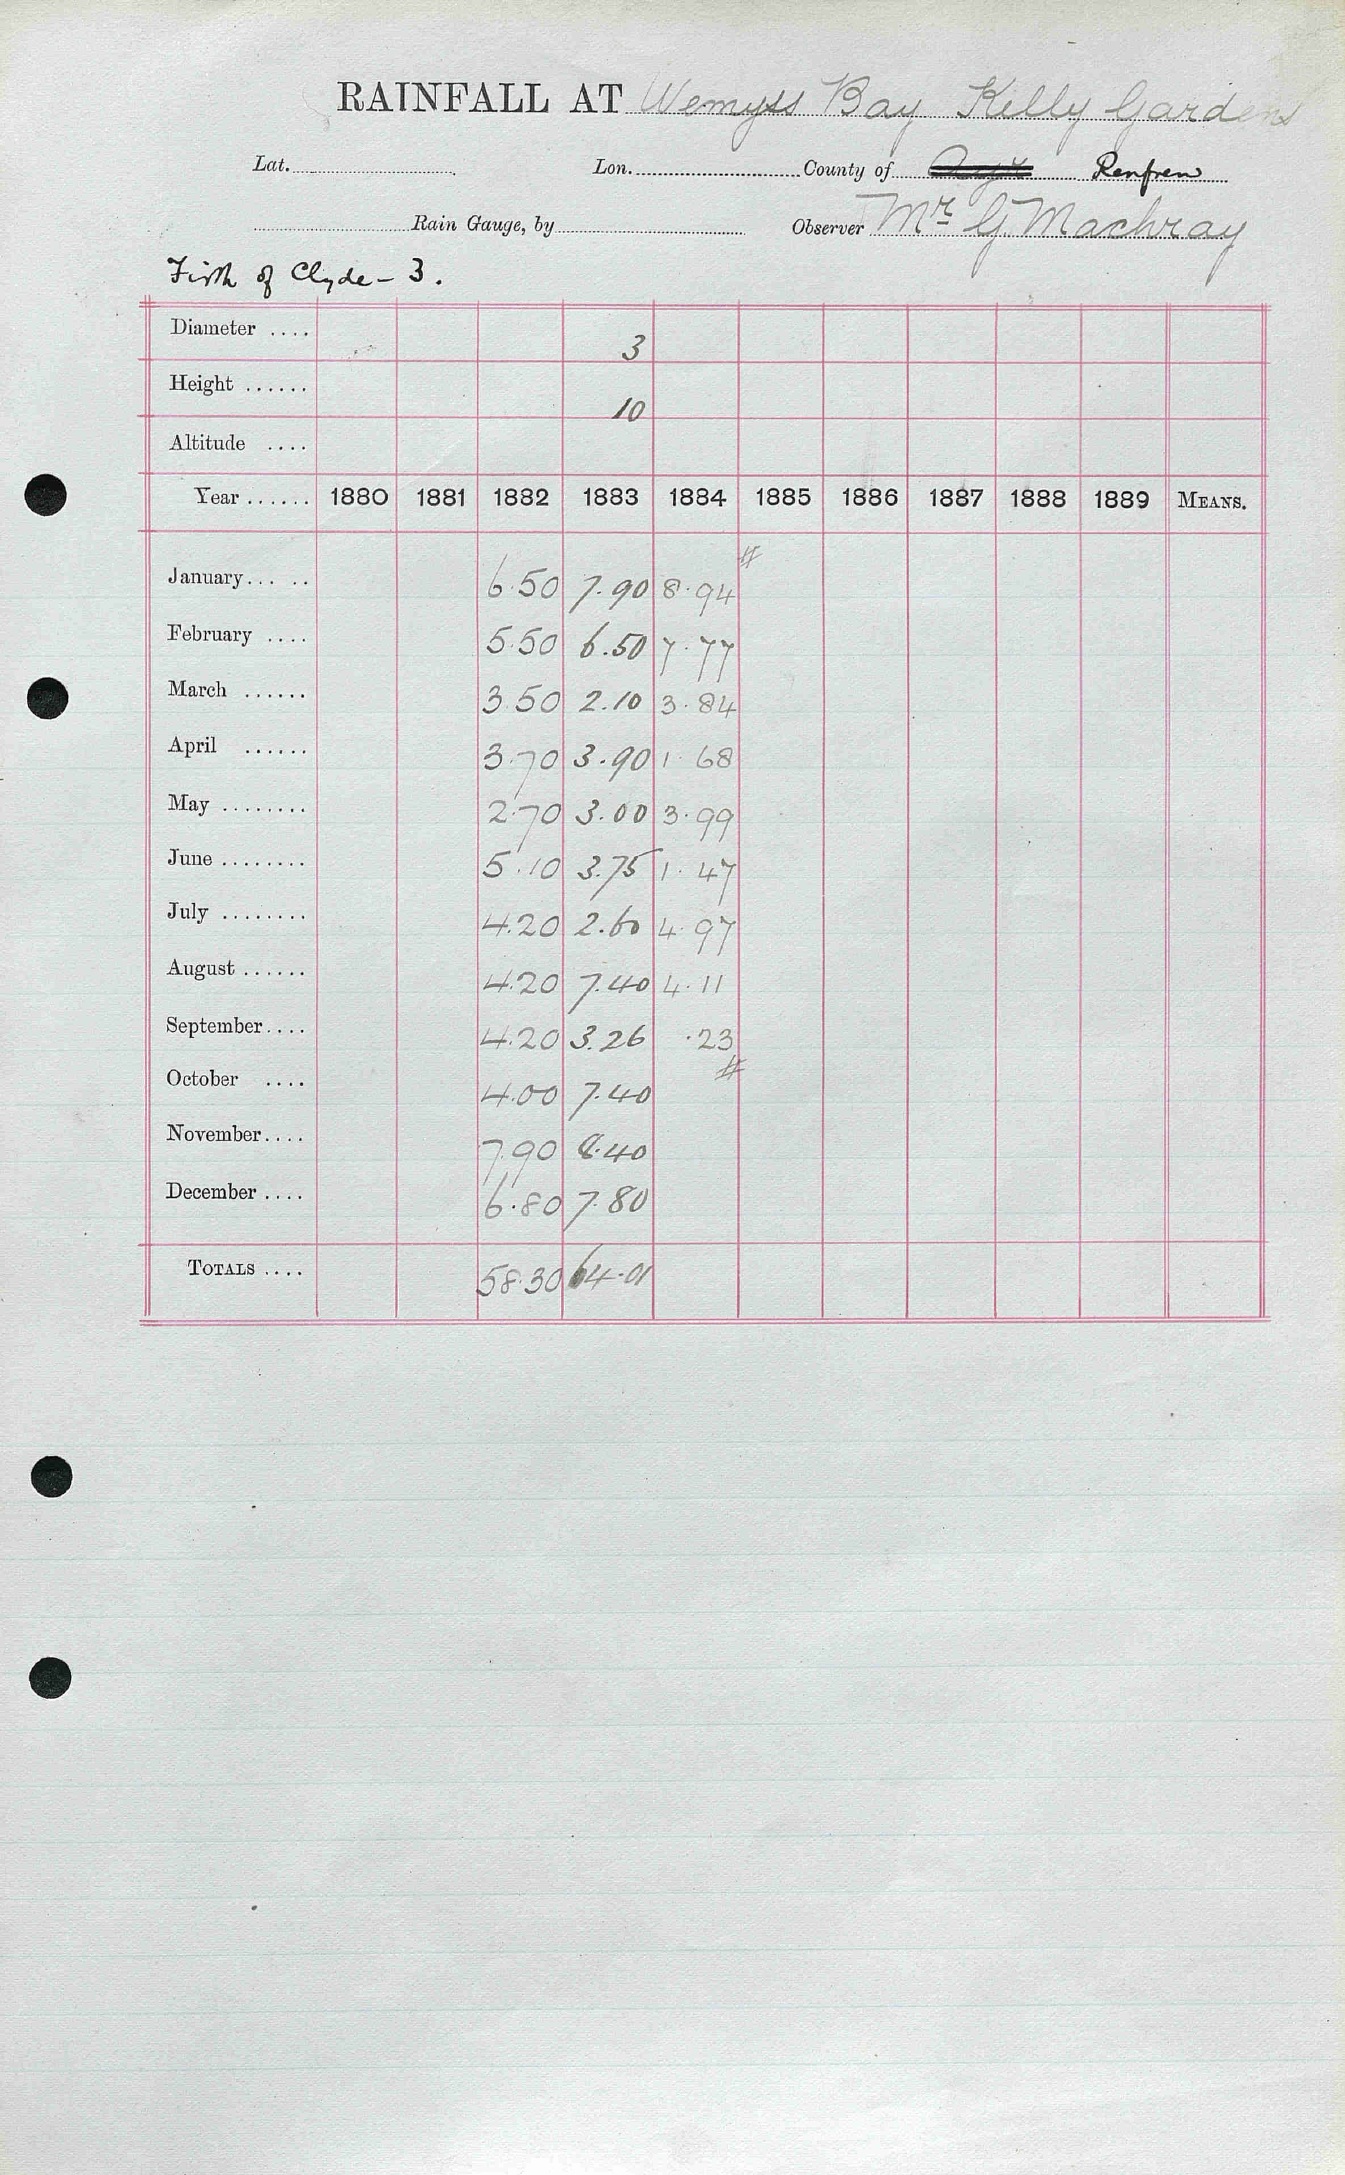 RAINFALL AT Wemyss Bay Kelly Gardens
Lat. Lon. County of Ayr Renfrew
Rain Gauge, by Observer Mr G Machray
Firth of Clyde – 3.
Diameter .... 3
Height ...... 10
Altitude ....
Year ...... 1880 1881 1882 1883 1884 1885 1886 1887 1888 1889 MEANS.
#
January... .. 6.50 7.90 8.94
February .... 5.50 6.50 7.77
March ...... 3.50 2.10 3.84
April ...... 3.70 3.90 1.68
May ........ 2.70 3.00 3.99
June ........ 5.10 3.75 1.47
July ........ 4.20 2.60 4.97
August ...... 4.20 7.40 4.11
September.... 4.20 3.26 .23
#
October .... 4.00 7.40
November.... 7.90 8.40
December .... 6.80 7.80
TOTALS .... 58.30 64.01